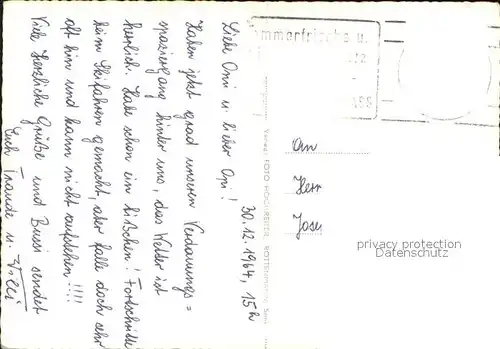 30.12.1964, 15h
Liebe Omi u. lieber Opi!
Haben jetzt grad unseren Verdauungs=
spaziergang hinter uns, das Wetter ist
herrlich. Habe schon ein bißchen! Fortschritte
beim Skifahren gemacht, aber falle doch sehr
oft hin und kann nicht aufstehen!!!!
Viele herzliche Grüße und Bussi sendet
Euch Traude u.
mmerfrische u.
An
Herr
Josef
Verlag FOTO HOCHREITER,
privacy protection
Datenschutz